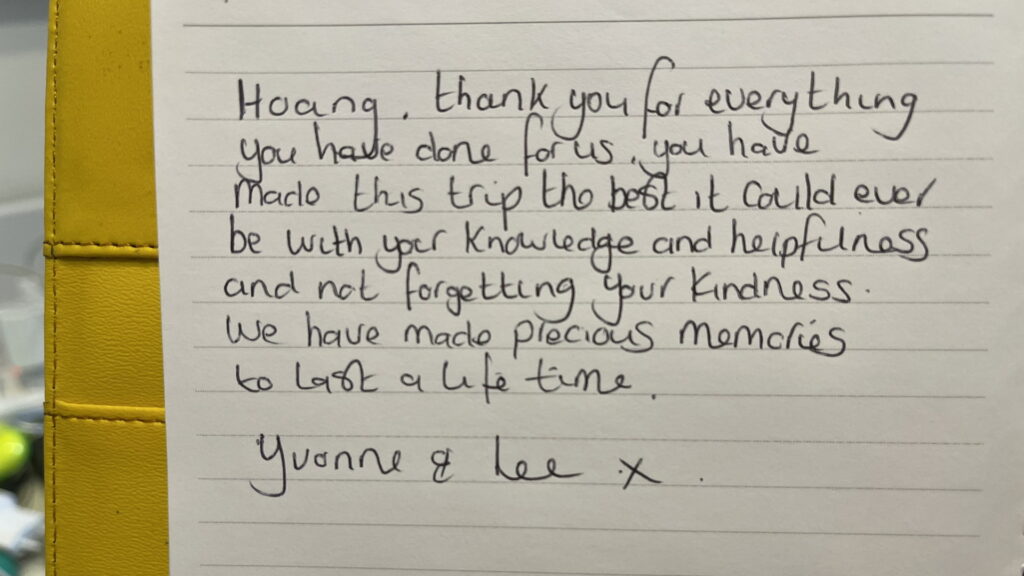 Hoang, thank you for everything
you have done for us, you have
made this trip the best it could ever
be with your knowledge and helpfulness
and not forgetting your kindness.
We have made precious memories
to last a life time.
Yvonne & Lee x.